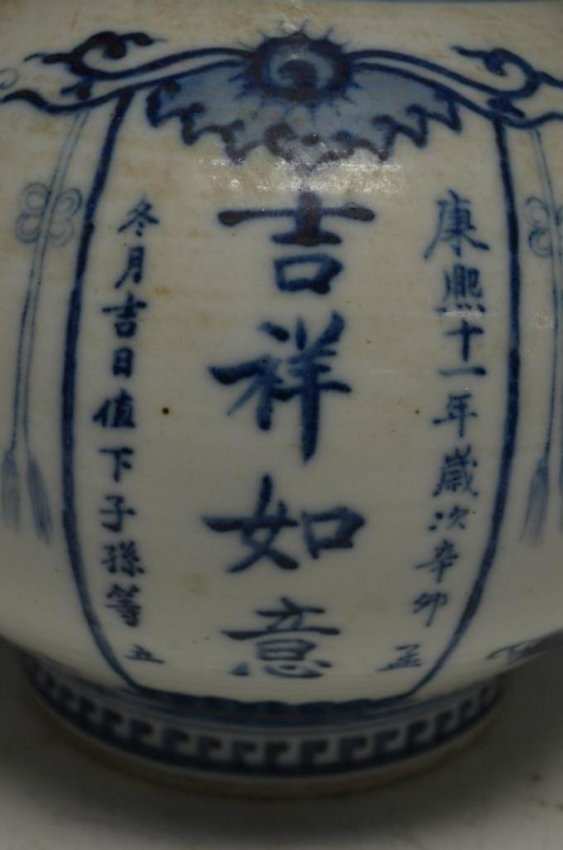 康熙十一年歲次辛卯孟
吉祥如意
冬月吉日值下子孫等立